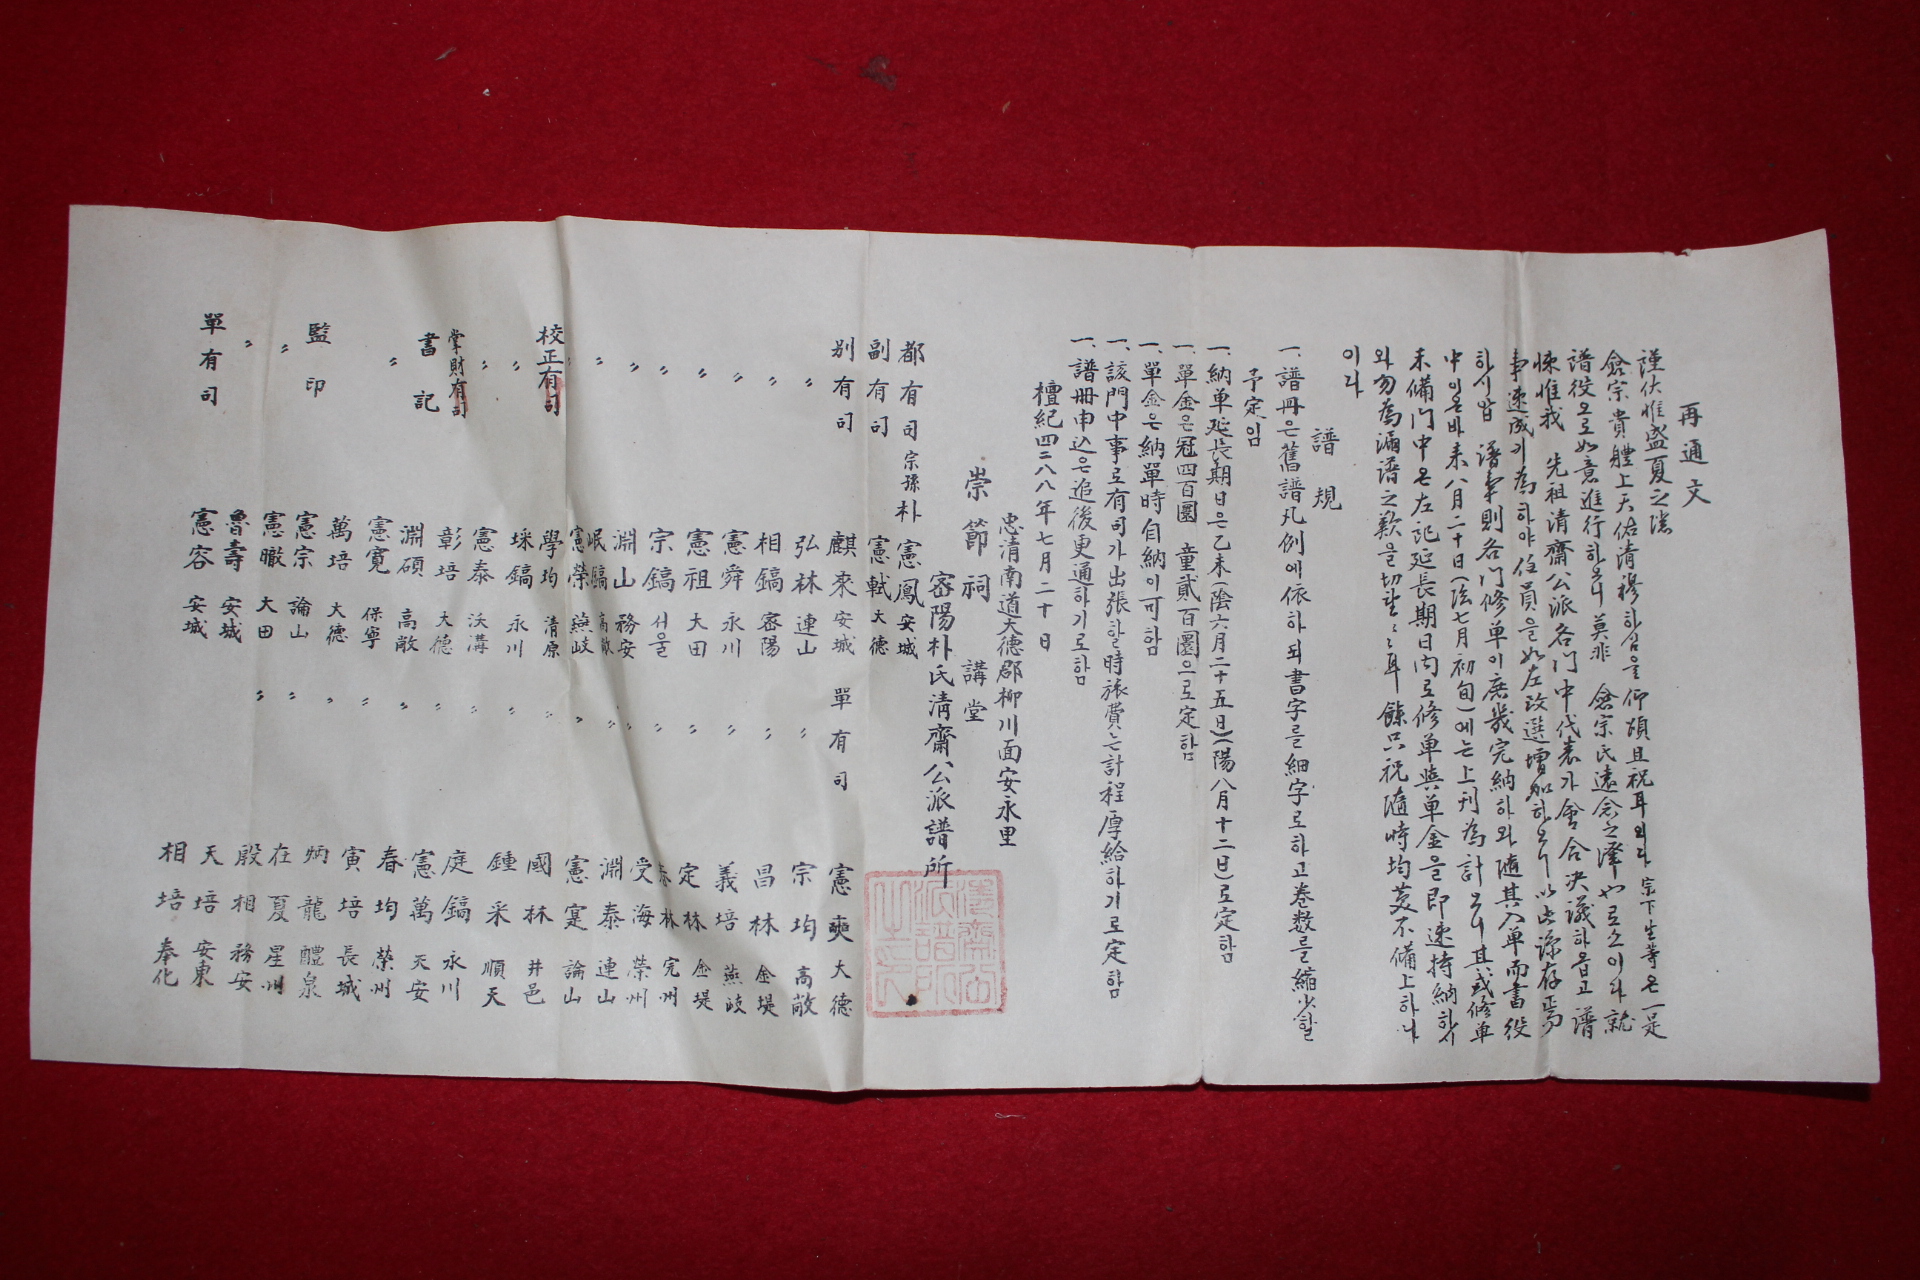 再通文
謹伏惟盛夏之
僉宗貴體上天佑清穆하심을仰頌且祝耳외다宗下生等은一是
譜役으로如意進行하오니莫非 僉宗氏遠念之澤也로소이다就
悚惟我 先祖清齋公派各門中代表가會合決議하옵고 譜
事速成기為하야任員을如左改選增加하오니以此諒存焉
하시압 譜事則各門修單이庶幾完納하와隨其入單而書役
中이온바來八月二十日(陰七月初旬)에는上刊為計오니其或修單
未備門中은左記延長期日內로修單與單金을即速持納하시
와勿為漏譜之歎을切望 耳 餘只祝隨時均 不備上하나
이다
譜規
一、譜冊은舊譜凡例에依하되書字를細字로하고卷數를縮少할
予定임
一、納单延長期日은乙未(陰六月二十五日)(陽八月十二日)로定함
一、單金은冠四百圜 童貳百圜으로定함
一、單金은納單時自納이可함
一、該門中事로有司가出張할時旅費는計程厚給하기로定함
一、譜冊申込은追後更通하기로함
檀紀四二八八年七月二十日
忠清南道大德郡柳川面安永里
崇節祠講堂
密陽朴氏清齋公派譜所
都有司 宗孫朴憲鳳 安城
副有司 憲軾 大德
別有司 麒來 安城 單有司 憲奭 大德
〃 弘林 連山 〃 宗均 高敞
〃 相鎬 密陽 〃 昌林 金堤
〃 憲舜 永川 〃 義培 燕岐
〃 憲祖 大田 定林 金堤
〃 宗鎬 서울 〃 林 完州
〃 淵山 務安 〃 受海 榮州
〃 鎬 高敞 〃 淵泰 連山
憲榮 燕岐 〃 憲寔 論山
校正有司 學均 清原 〃 國林 井邑
〃 埰鎬 永川 〃 鍾采 順天
〃 憲泰 沃溝 〃 庭鎬 永川
掌財有司 彰培 大德 〃 憲萬 天安
書記 淵碩 高敞 〃 春均 榮州
〃 憲寬 保寧 〃 寅培 長城
監印 萬培 大德 〃 炳龍 醴泉
〃 憲宗 論山 〃 在夏 星州
〃 憲瞮 大田 〃 殷相 務安
單有司 魯壽 安城 天培 安東
憲容 安城 相培 奉化
清齋公派譜所之印